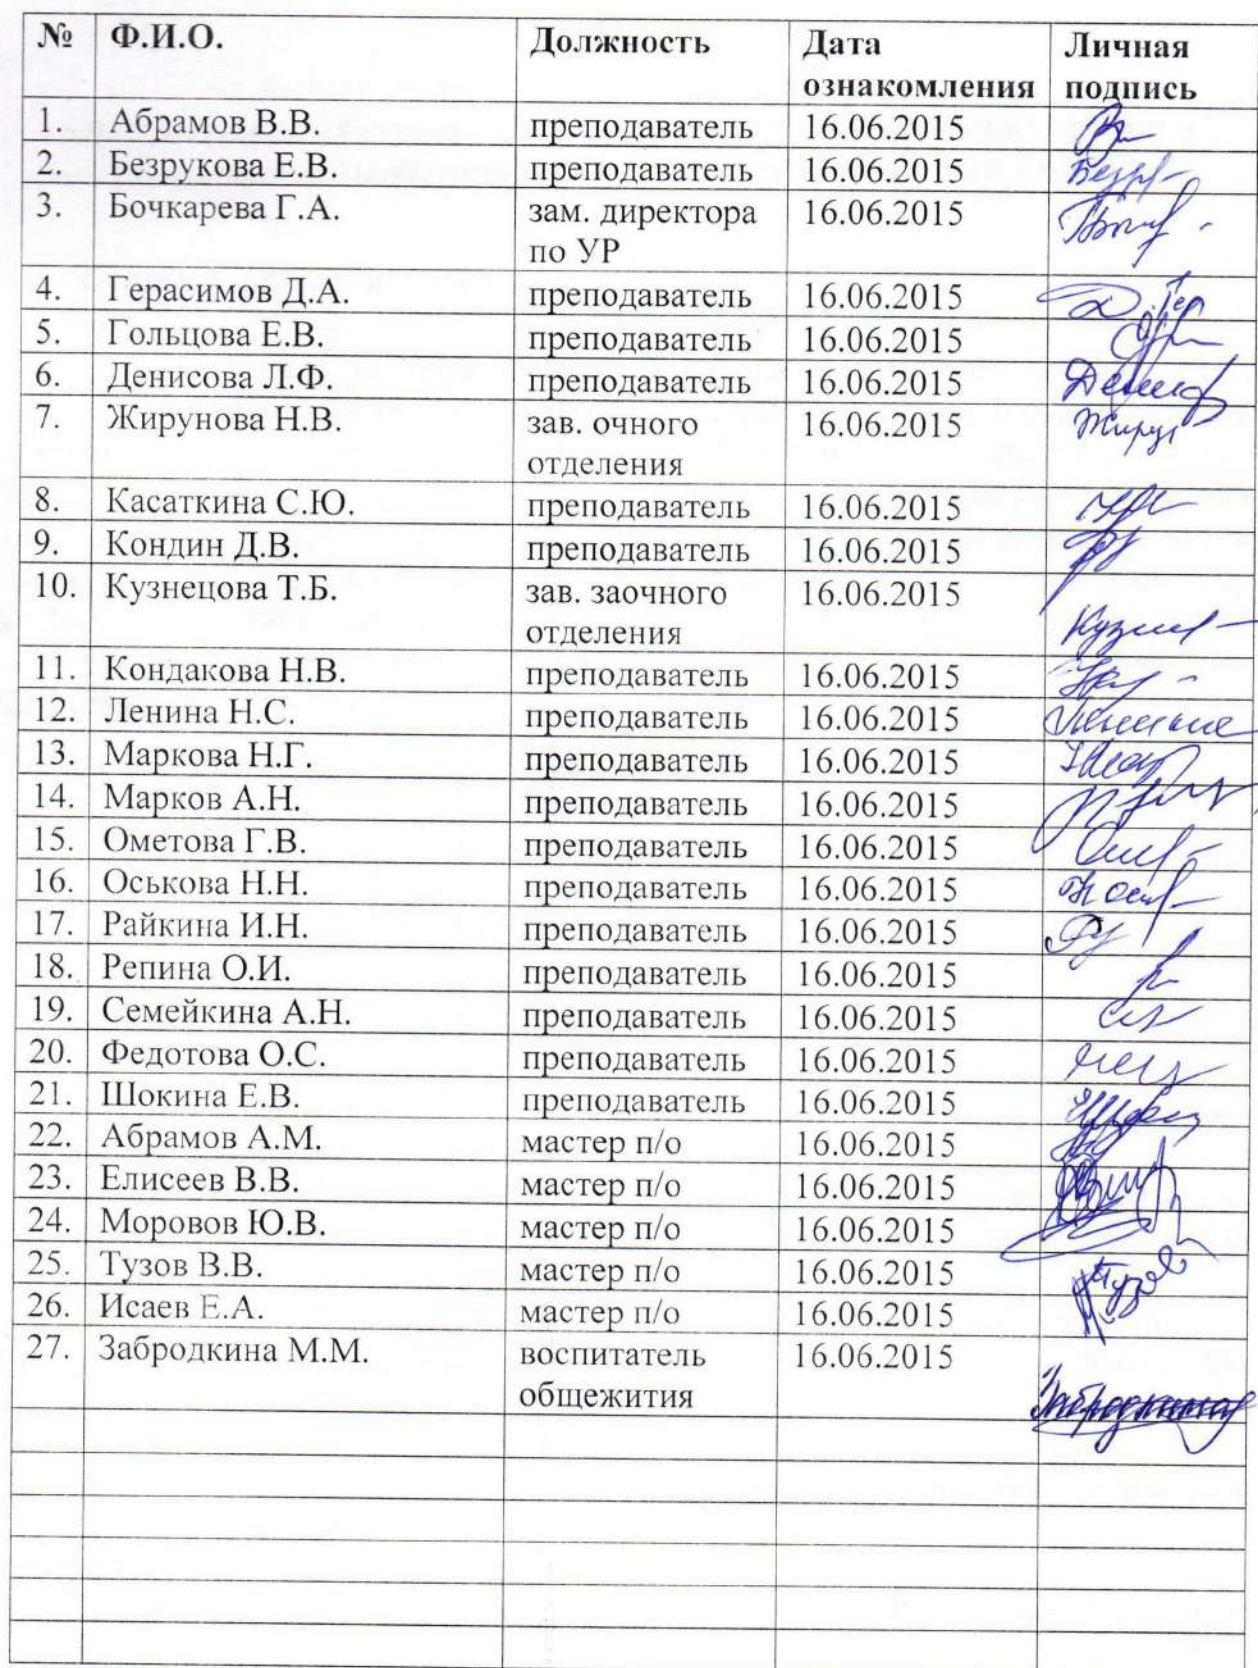 № Ф.И.О. Должность Дата Личная
ознакомления подпись
1. Абрамов В.В. преподаватель 16.06.2015
2. Безрукова Е.В. преподаватель 16.06.2015
3. Бочкарева Г.А. зам. директора 16.06.2015
по УР
4. Герасимов Д.А. преподаватель 16.06.2015
5. Гольцова Е.В. преподаватель 16.06.2015
6. Денисова Л.Ф. преподаватель 16.06.2015
7. Жирунова Н.В. зав. очного 16.06.2015
отделения
8. Касаткина С.Ю. преподаватель 16.06.2015
9. Кондин Д.В. преподаватель 16.06.2015
10. Кузнецова Т.Б. зав. заочного 16.06.2015
отделения
11. Кондакова Н.В. преподаватель 16.06.2015
12. Ленина Н.С. преподаватель 16.06.2015
13. Маркова Н.Г. преподаватель 16.06.2015
14. Марков А.Н. преподаватель 16.06.2015
15. Ометова Г.В. преподаватель 16.06.2015
16. Оськова Н.Н. преподаватель 16.06.2015
17. Райкина И.Н. преподаватель 16.06.2015
18. Репина О.И. преподаватель 16.06.2015
19. Семейкина А.Н. преподаватель 16.06.2015
20. Федотова О.С. преподаватель 16.06.2015
21. Шокина Е.В. преподаватель 16.06.2015
22. Абрамов А.М. мастер п/о 16.06.2015
23. Елисеев В.В. мастер п/о 16.06.2015
24. Моровов Ю.В. мастер п/о 16.06.2015
25. Тузов В.В. мастер п/о 16.06.2015
26. Исаев Е.А. мастер п/о 16.06.2015
27. Забродкина М.М. воспитатель 16.06.2015
общежития